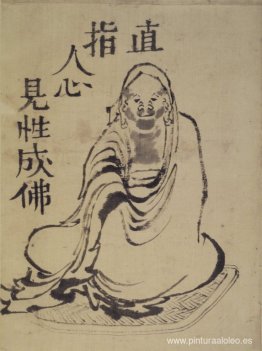 直指
人心
見性成佛
www.pinturaaloleo.es